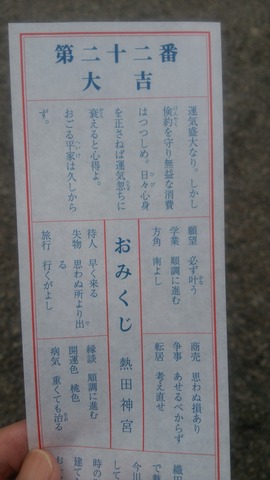 第二十二番
大吉
運気盛大なり。しかし
倹約を守り無益な消費
はつつしめ。日々心身
を正さねば運気忽ちに
衰えると心得よ。
おごる平家は久しから
ず。
願望 必ず叶う
学業 順調に進む
方角 南よし
おみくじ 熱田神宮
待人 早く来る
失物 思わぬ所より出
る
旅行 行くがよし
商売 思わぬ損あり
争事 あせるべからず
転居 考え直せ
縁談 順調に進む
開運色 桃色
病気 重くても治る
織田
で勲
今川
して
時の
建て